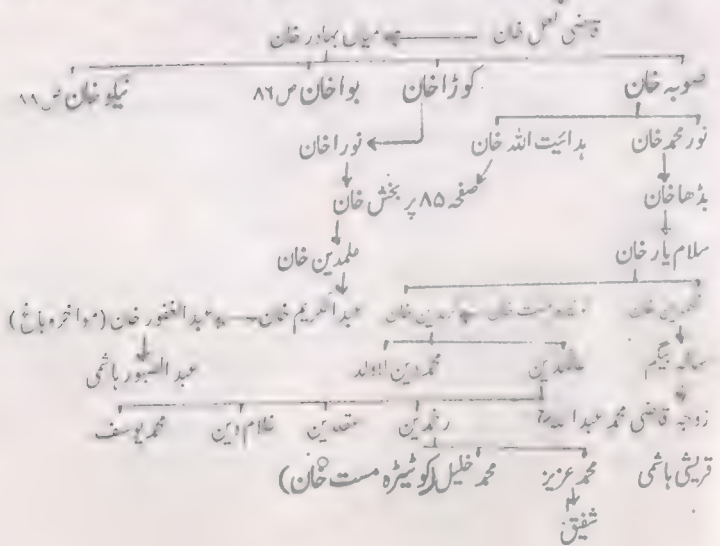 قاضی لعل خان ← میاں بہادر خان
صوبہ خان کوڑا خان بوا خان ص ۸۶ نیکو خان ص ۹۹
نور محمد خان ہدائیت اللہ خان نورا خان
بڈھا خان صفحہ ۸۵ پر بخش خان
سلام یار خان علمدین خان
مست خان عبدالکریم خان عبدالغفور خان (مواخرہ باغ)
بیگم محمد دین لاولد عبدالصبور ہاشمی
زوجہ قاضی محمد عبداللہ غلام دین محمد یوسف
قریشی ہاشمی محمد عزیز محمد خلیل (کوٹیڑہ مست خان)
شفیق